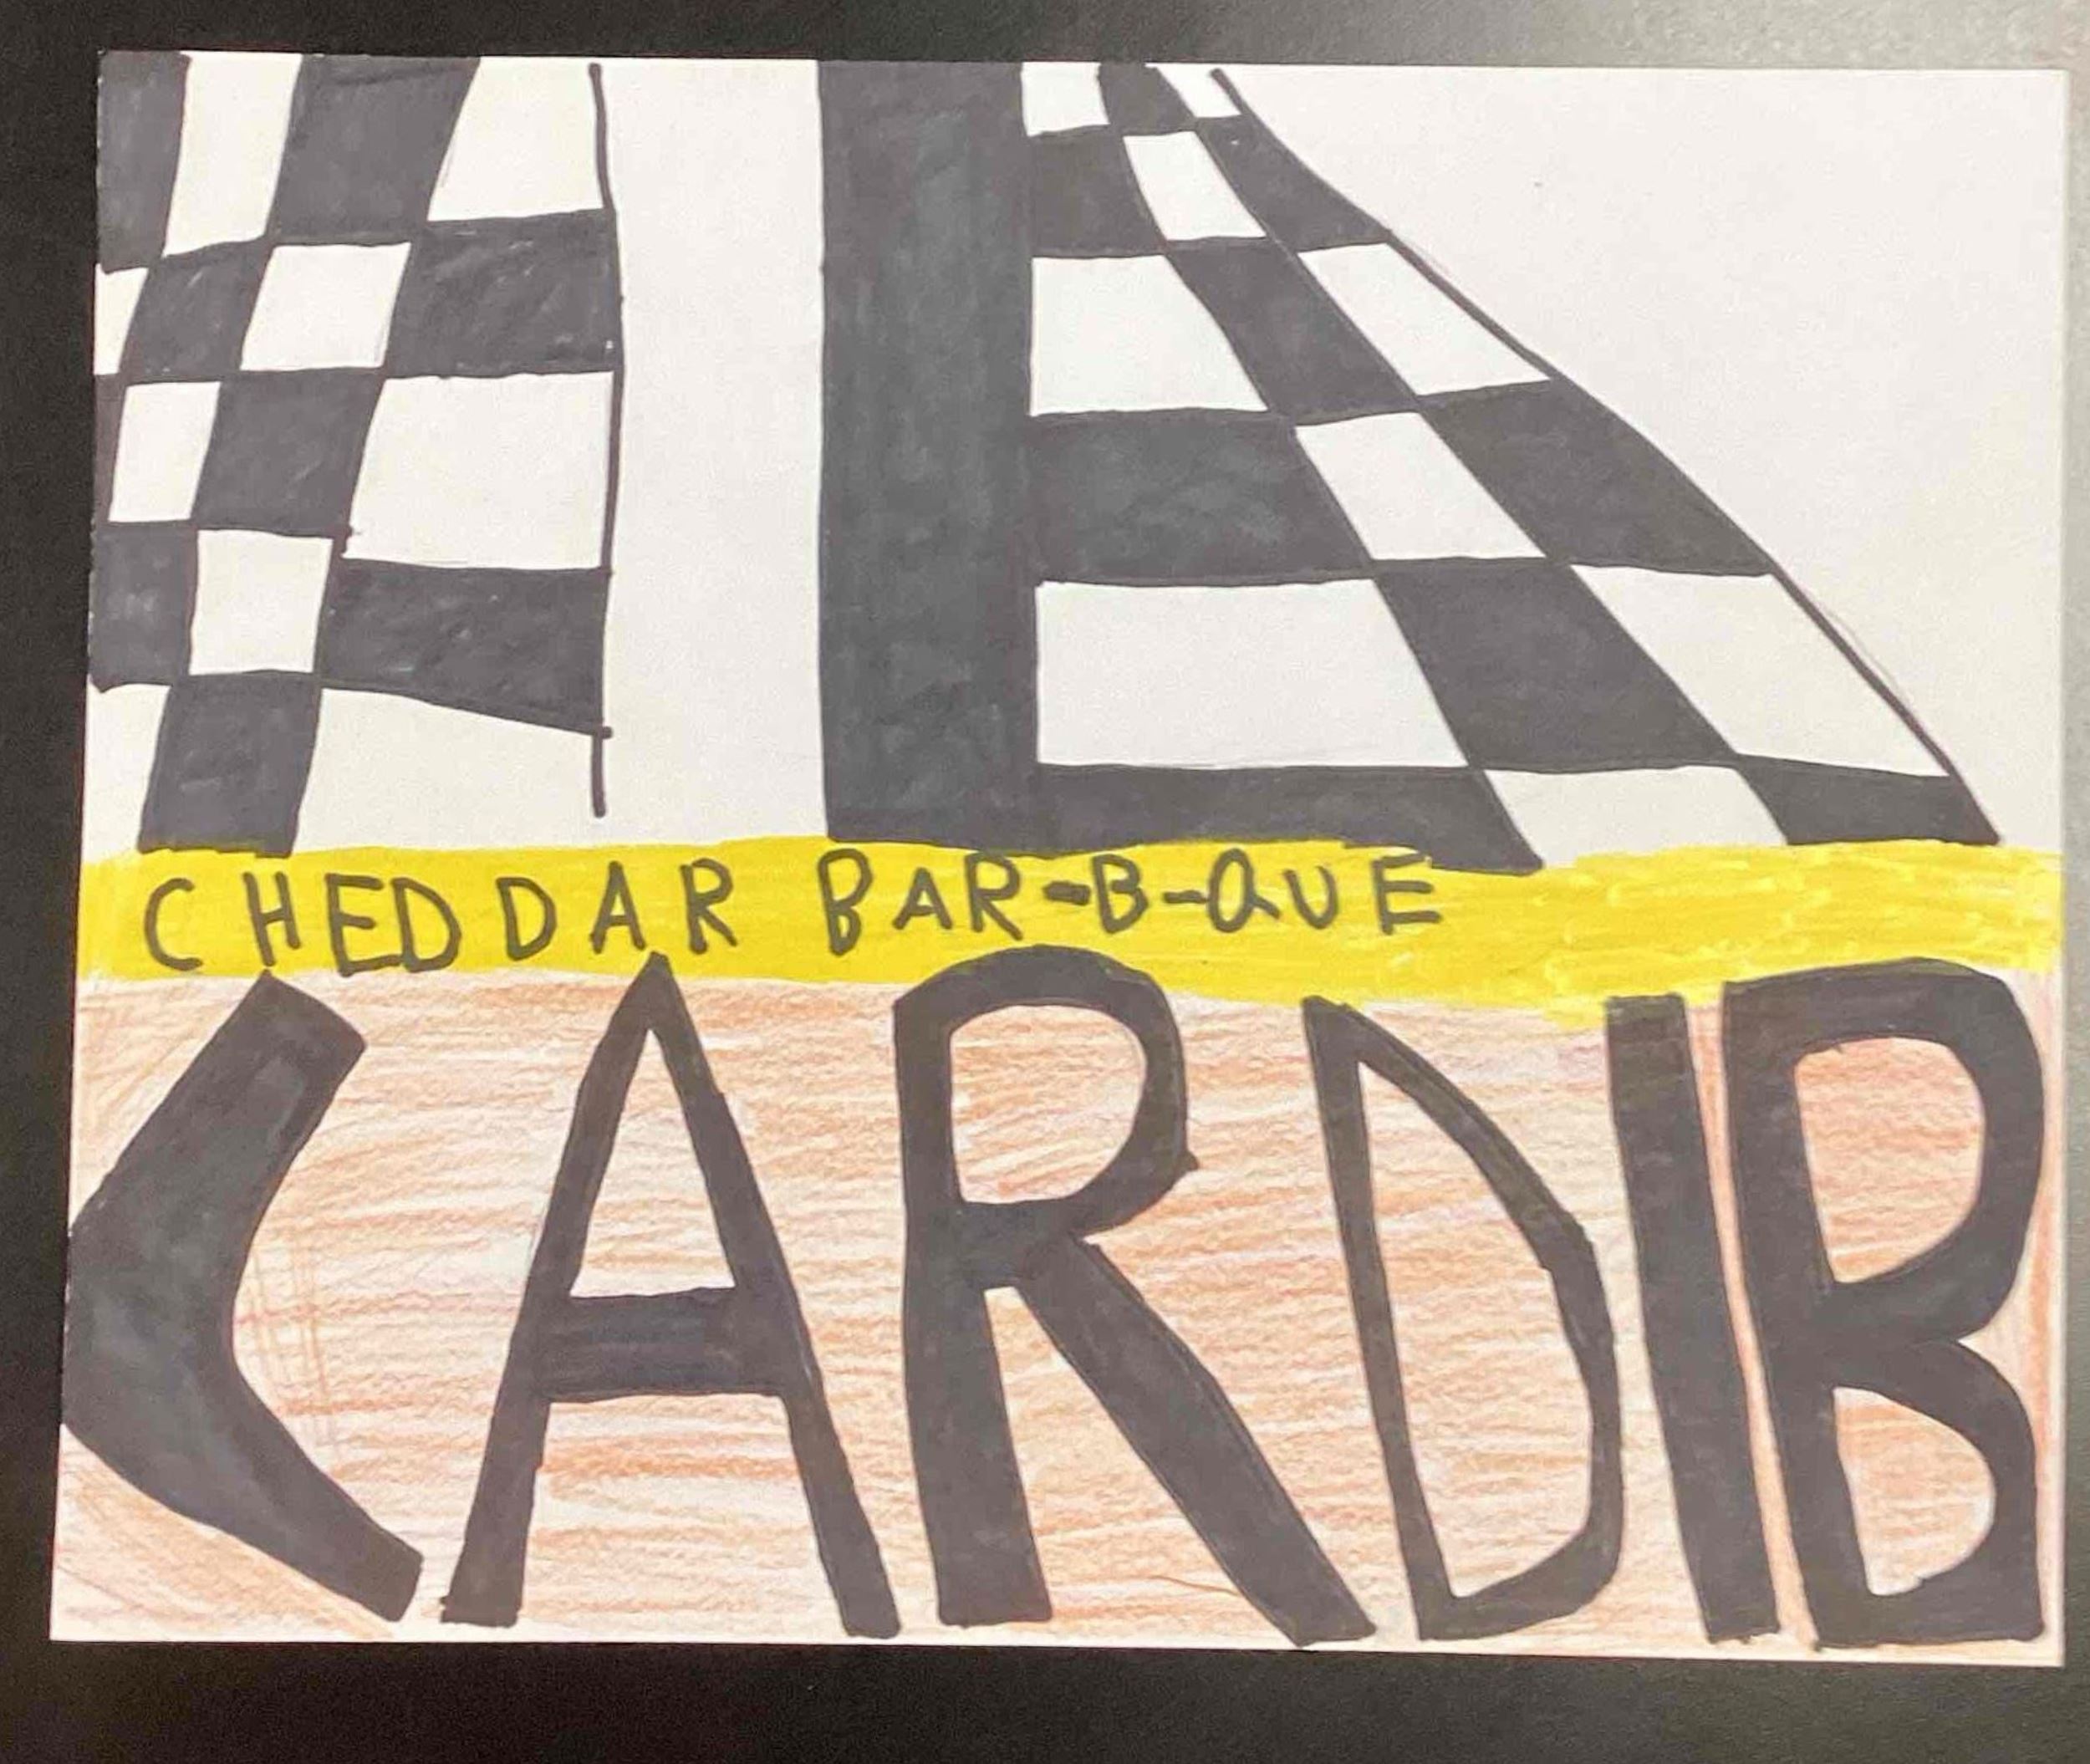 CHEDDAR BAR-B-QUE
CARDIB